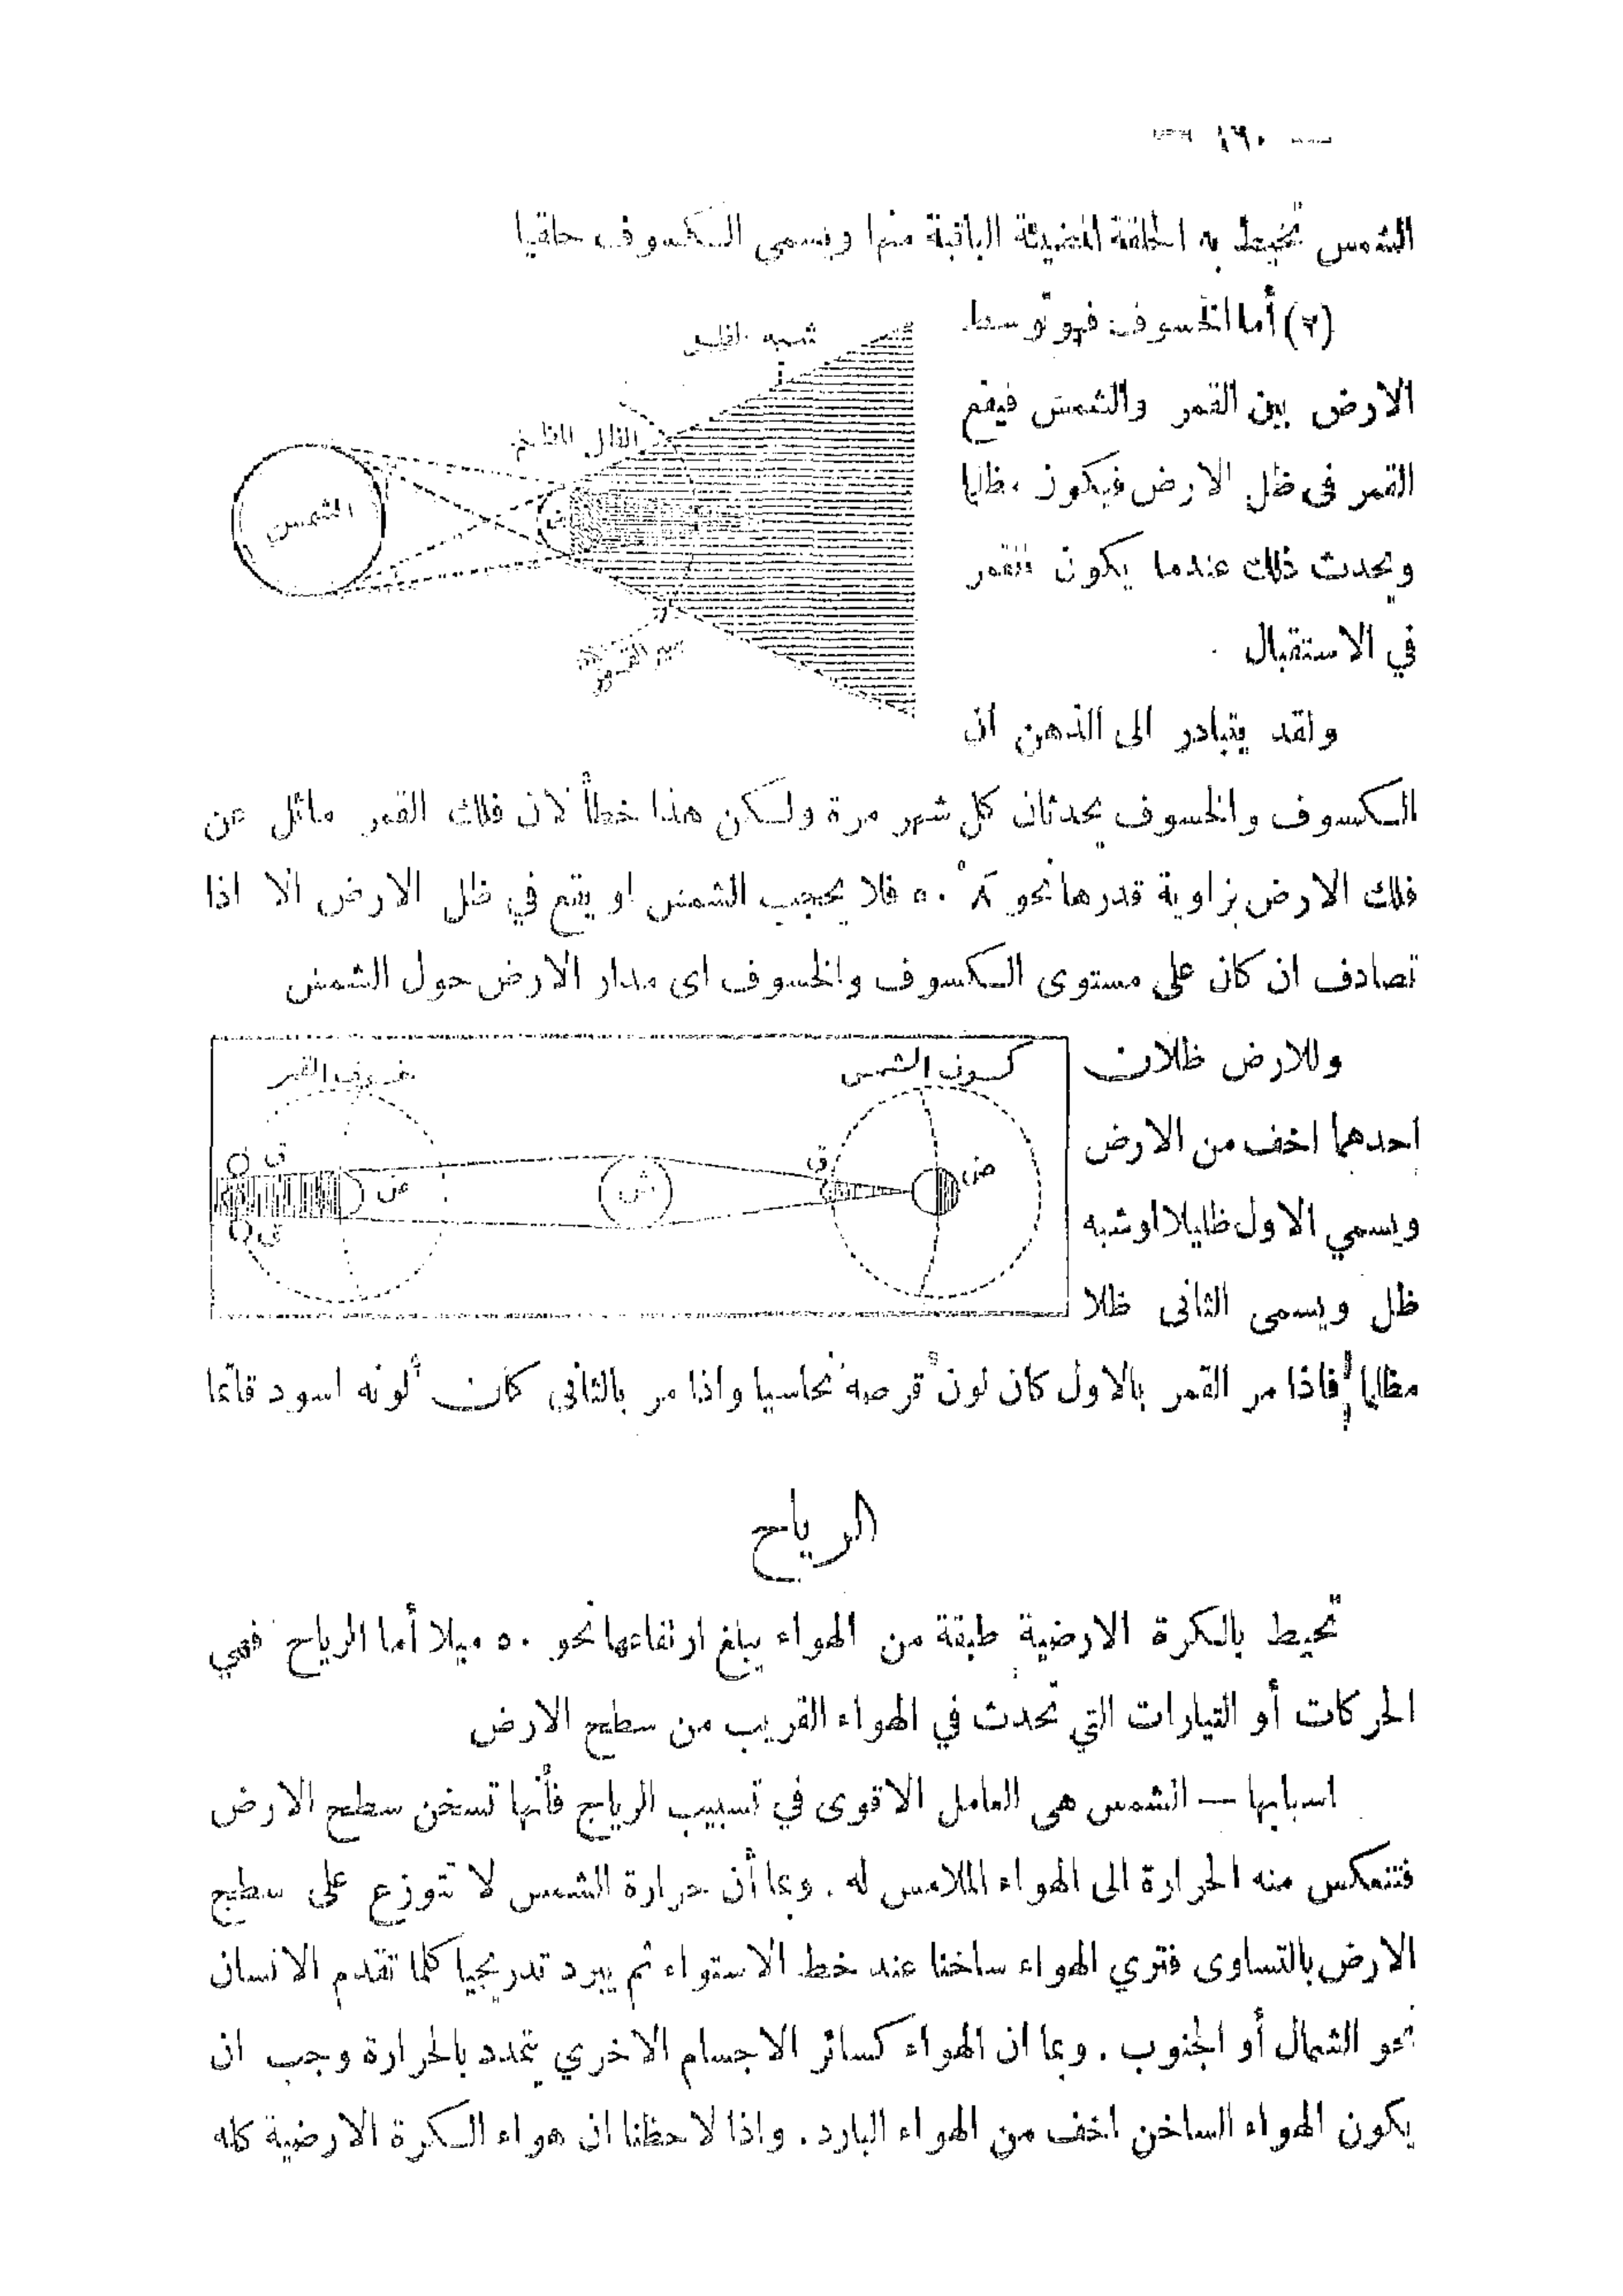 — ١٦٠ —
الشمس تحيط به الحلقة المضيئة الباقية منها ويسمى الكسوف حلقيا
(٢) أما الخسوف فهو توسط
الارض بين القمر والشمس فيقع
القمر فى ظل الارض فيكون مظلما
ويحدث ذلك عندما يكون القمر
في الاستقبال .
شبه الظل
الظل
الشمس
سير القمر
ولقد يتبادر الى الذهن ان
الكسوف والخسوف يحدثان كل شهر مرة ولكن هذا خطأ لان فلك القمر مائل عن
فلك الارض بزاوية قدرها نحو ٨ ° ٥٠ فلا يحجب الشمس او يقع في ظل الارض الا اذا
تصادف ان كان على مستوى الكسوف والخسوف اى مدار الارض حول الشمس
وللارض ظلان
احدهما اخف من الارض
ويسمي الاول ظليلا اوشبه
ظل ويسمى الثانى ظلا
كسوف الشمس
خسوف القمر
ض
ق
ش
ض
ق
ق
مظلما فاذا مر القمر بالاول كان لون قرصه نحاسيا واذا مر بالثانى كان لونه اسود قاتما
الرياح
تحيط بالكرة الارضية طبقة من الهواء يبلغ ارتفاعها نحو ٥٠ ميلا أما الرياح فهي
الحركات أو التيارات التي تحدث في الهواء القريب من سطح الارض
اسبابها — الشمس هى العامل الاقوى في تسبيب الرياح فأنها تسخن سطح الارض
فتنعكس منه الحرارة الى الهواء الملامس له . وبما أن حرارة الشمس لا تتوزع على سطح
الارض بالتساوى فتري الهواء ساخنا عند خط الاستواء ثم يبرد تدريجيا كلما تقدم الانسان
نحو الشمال أو الجنوب . وبما ان الهواء كسائر الاجسام الاخري يتمدد بالحرارة وجب ان
يكون الهواء الساخن اخف من الهواء البارد . واذا لاحظنا ان هواء الكرة الارضية كله